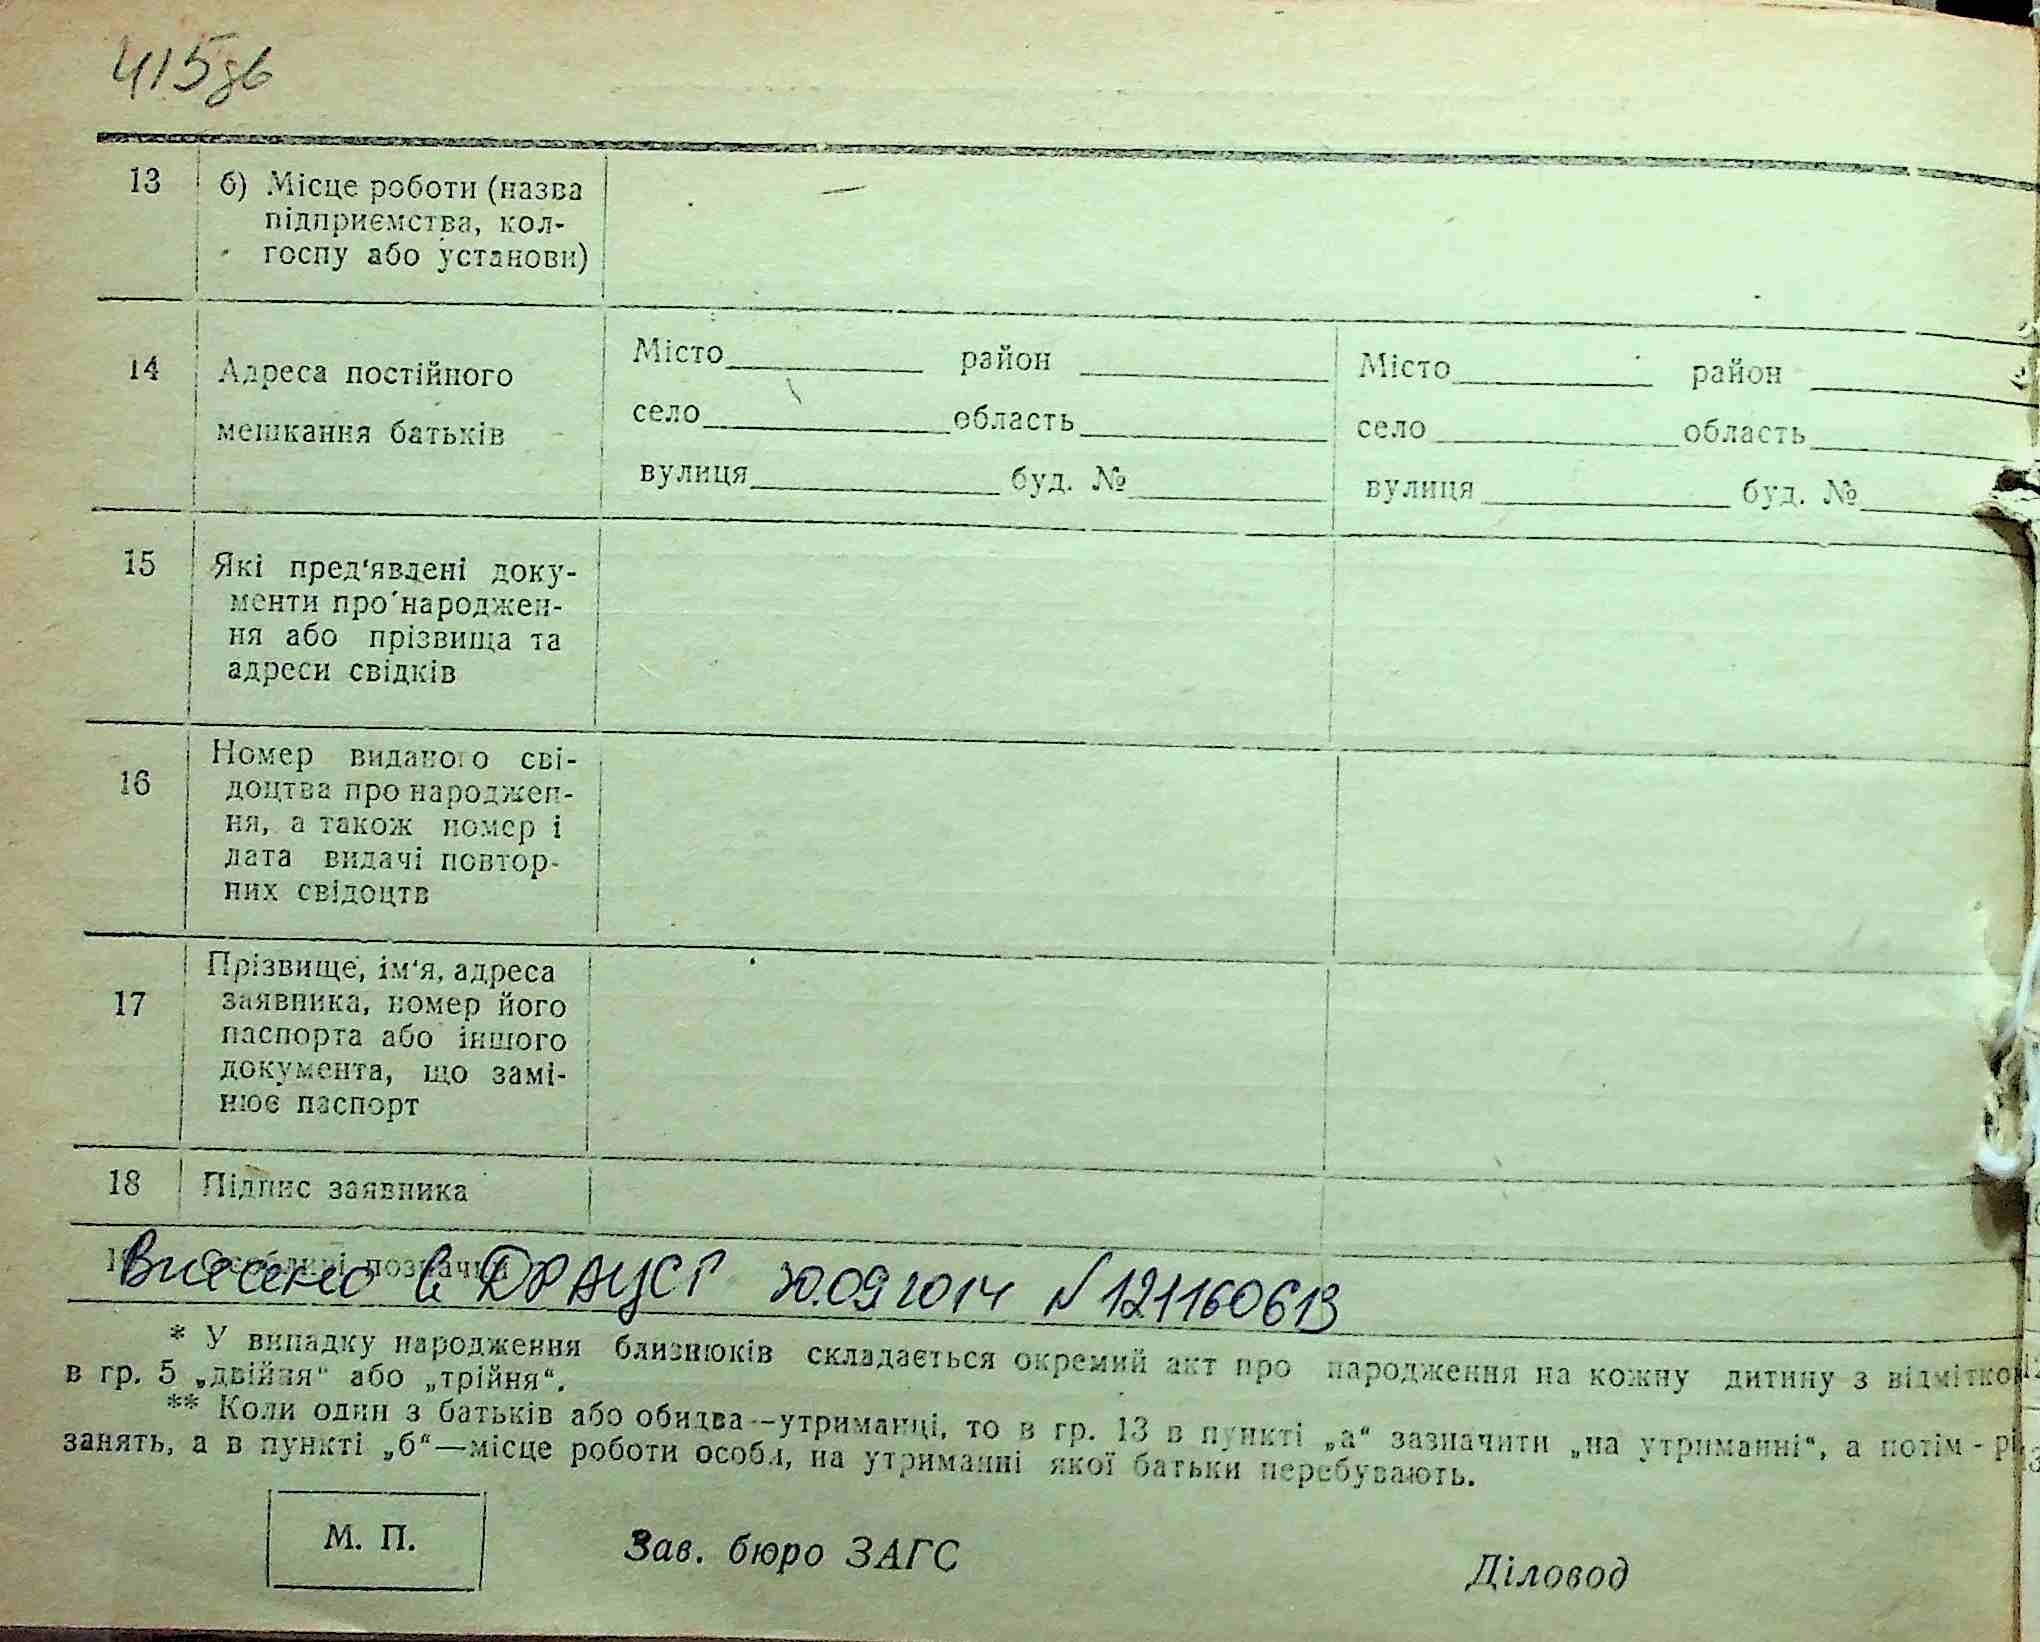 415зв
13 б) Місце роботи (назва
підприємства, кол-
госпу або установи)
—
14 Адреса постійного
мешкання батьків
Місто район
село область
вулиця буд. №
Місто район
село область
вулиця буд. №
15 Які пред'явлені доку-
менти про народжен-
ня або прізвища та
адреси свідків
16 Номер виданого сві-
доцтва про народжен-
ня, а також номер і
дата видачі повтор-
них свідоцтв
17 Прізвище, ім'я, адреса
заявника, номер його
паспорта або іншого
документа, що замі-
нює паспорт
18 Підпис заявника
позначки
Внесено в ДРАЦСГ 30.09 2014 N 121160613
* У випадку народження близнюків складається окремий акт про народження на кожну дитину з відмітко
в гр. 5 „двійня“ або „трійня“.
** Коли один з батьків або обидва—утриманці, то в гр. 13 в пункті „а“ зазначити „на утриманні“, а потім - рі
занять, а в пункті „б“—місце роботи особи, на утриманні якої батьки перебувають.
М. П.
Зав. бюро ЗАГС
Діловод